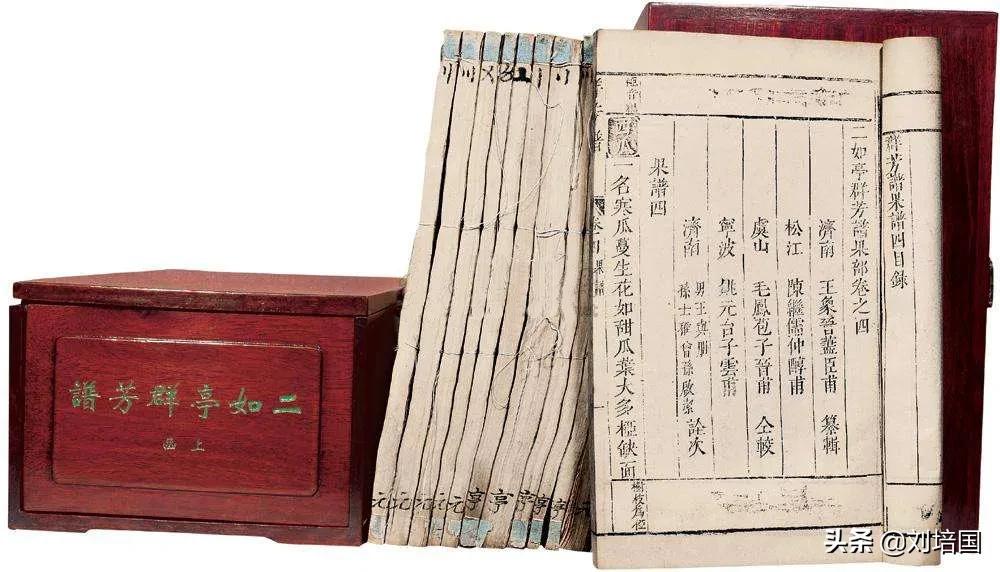 二如亭群芳譜
上函
群芳譜果譜四目錄
二如亭群芳譜果部卷之四
濟南 王象晉藎臣甫 纂輯
松江 陳繼儒仲醇甫
虞山 毛鳳苞子晉甫 仝較
寧波 姚元台子雲甫
濟南 男王與胤 孫士雅曾孫啟 詮次
果譜四
西瓜
一名寒瓜蔓生花如甜瓜葉大多椏缺面
元 元 元 元 亨 亨 亨 亨 亨
头条 @刘培国